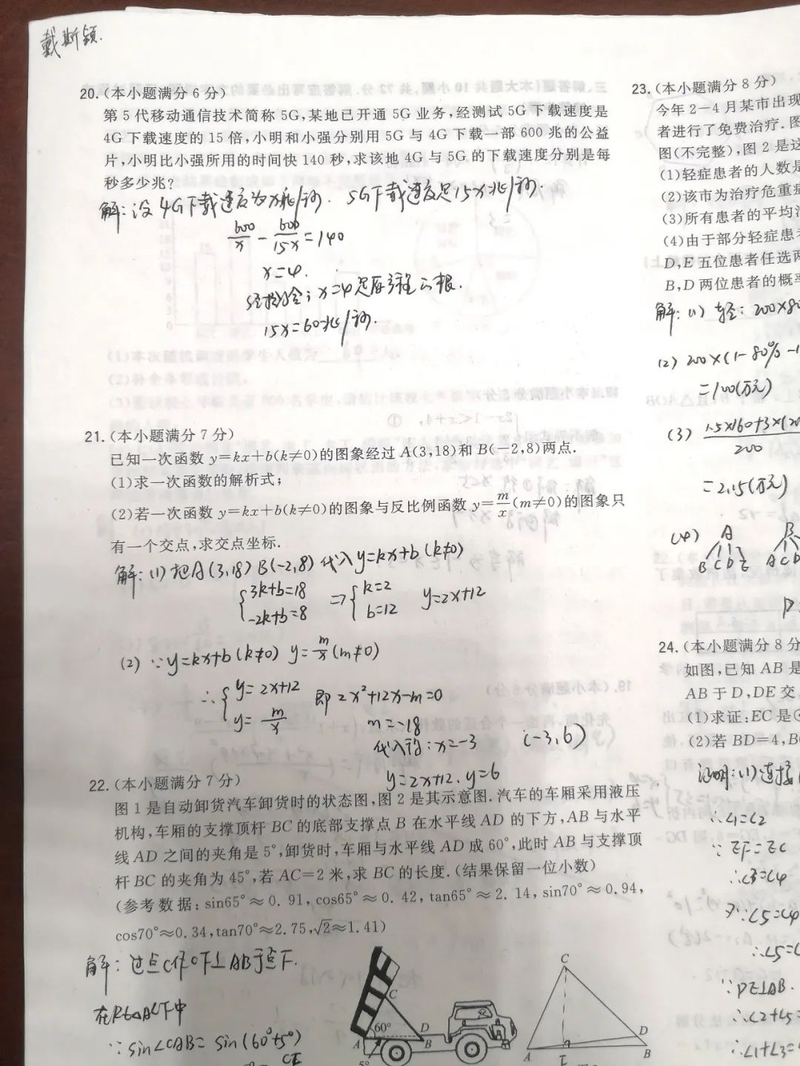 戴斯颖
20.(本小题满分 6 分)
第 5 代移动通信技术简称 5G,某地已开通 5G 业务,经测试 5G 下载速度是
4G 下载速度的 15 倍,小明和小强分别用 5G 与 4G 下载一部 600 兆的公益
片,小明比小强所用的时间快 140 秒,求该地 4G 与 5G 的下载速度分别是每
秒多少兆?
解:设 4G下载速度为x兆/秒. 5G下载速度是15x兆/秒.
600/x - 600/15x = 140
x=4.
经检验:x=4是原方程的根.
15x=60兆/秒.
21.(本小题满分 7 分)
已知一次函数 y=kx+b(k≠0)的图象经过 A(3,18)和 B(-2,8)两点.
(1)求一次函数的解析式;
(2)若一次函数 y=kx+b(k≠0)的图象与反比例函数 y=m/x(m≠0)的图象只
有一个交点,求交点坐标.
解:(1)把A(3,18) B(-2,8)代入y=kx+b(k≠0)
{3k+b=18 ⇒ {k=2 y=2x+12
-2k+b=8 b=12
(2) ∵y=kx+b(k≠0) y=m/x(m≠0)
∴{y=2x+12 即2x²+12x-m=0
y=m/x m=-18
代入得:x=-3 (-3,6)
y=2x+12.y=6
22.(本小题满分 7 分)
图 1 是自动卸货汽车卸货时的状态图,图 2 是其示意图.汽车的车厢采用液压
机构,车厢的支撑顶杆 BC 的底部支撑点 B 在水平线 AD 的下方,AB 与水平
线 AD 之间的夹角是 5°,卸货时,车厢与水平线 AD 成 60°,此时 AB 与支撑顶
杆 BC 的夹角为 45°,若 AC=2 米,求 BC 的长度.(结果保留一位小数)
(参考数据:sin65°≈0.91,cos65°≈0.42,tan65°≈2.14,sin70°≈0.94,
cos70°≈0.34,tan70°≈2.75,√2≈1.41)
解:过点C作CF⊥AB于点F.
在Rt△ACF中
∵sin∠CAB=sin(60°+5°)
C
60°
A D B
5°
C
A F D B
23.(本小题满分 8 分)
今年 2-4 月某市出现
者进行了免费治疗.图
图(不完整),图 2 是这
(1)轻症患者的人数是
(2)该市为治疗危重
(3)所有患者的平均
(4)由于部分轻症患
D,E 五位患者任选两
B,D 两位患者的概率
解:(1)轻:200×80
(2)200×(1-80%-1
=100(万元)
(3) 1.5×160+3×(20 / 200
=2.15(万元)
(4) A B
B C D E A C D
24.(本小题满分 8 分
如图,已知 AB 是
AB 于 D,DE 交
(1)求证:EC 是⊙
(2)若 BD=4,B
证明:(1)连接
∴∠1=∠2
∵EF=EC
∴∠3=∠4
又∵∠5=∠4
∴∠5=∠
∵DE⊥AB.
∴∠2+∠5=
∴∠1+∠3=